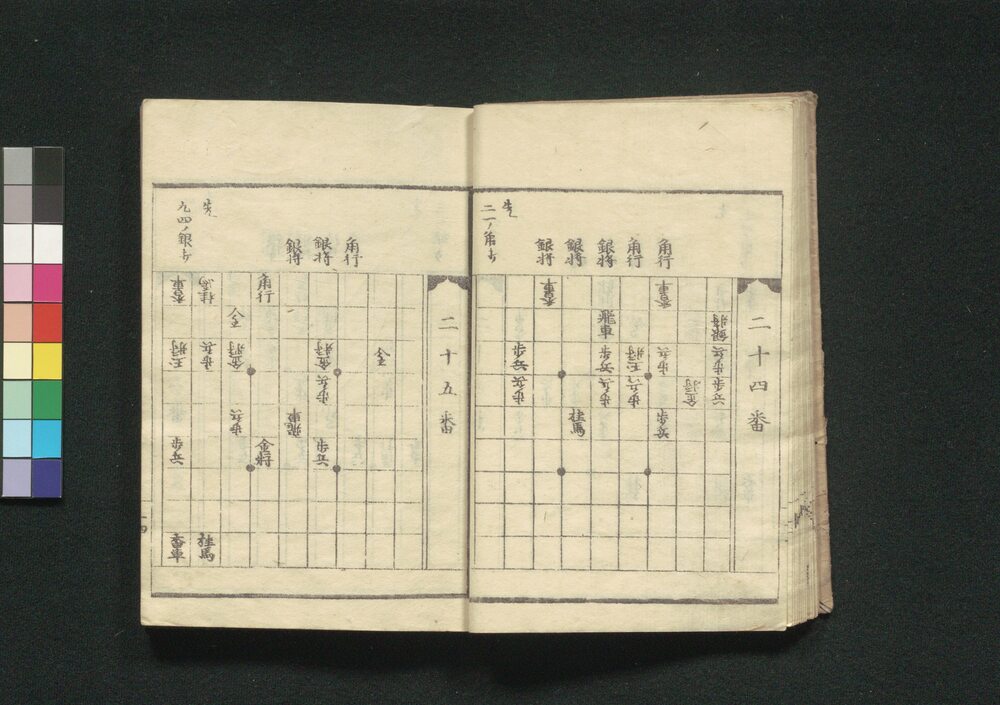 二十四番
角行
角行
銀将
銀将
銀将
先
銀将
歩兵
歩兵
金将
香車
歩兵
歩兵
玉将
歩兵
飛車
歩兵
歩兵
桂馬
香車
歩兵
歩兵
二十五番
角行
銀将
銀将
先
九四ノ銀打
全
金将
歩兵
歩兵
飛車
角行
金将
全
金将
歩兵
歩兵
桂馬
香車
玉将
歩兵
香車